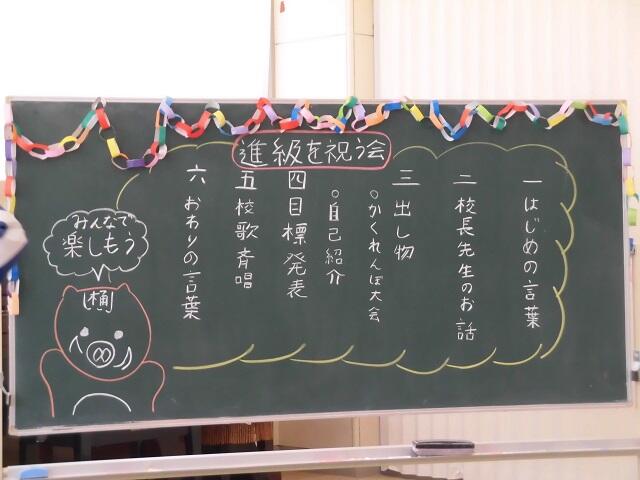 進級を祝う会
一 はじめの言葉
二 校長先生のお話
三 出し物
○かくれんぼ大会
○自己紹介
四 目標発表
五 校歌斉唱
六 おわりの言葉
みんなで
楽しもう
桶